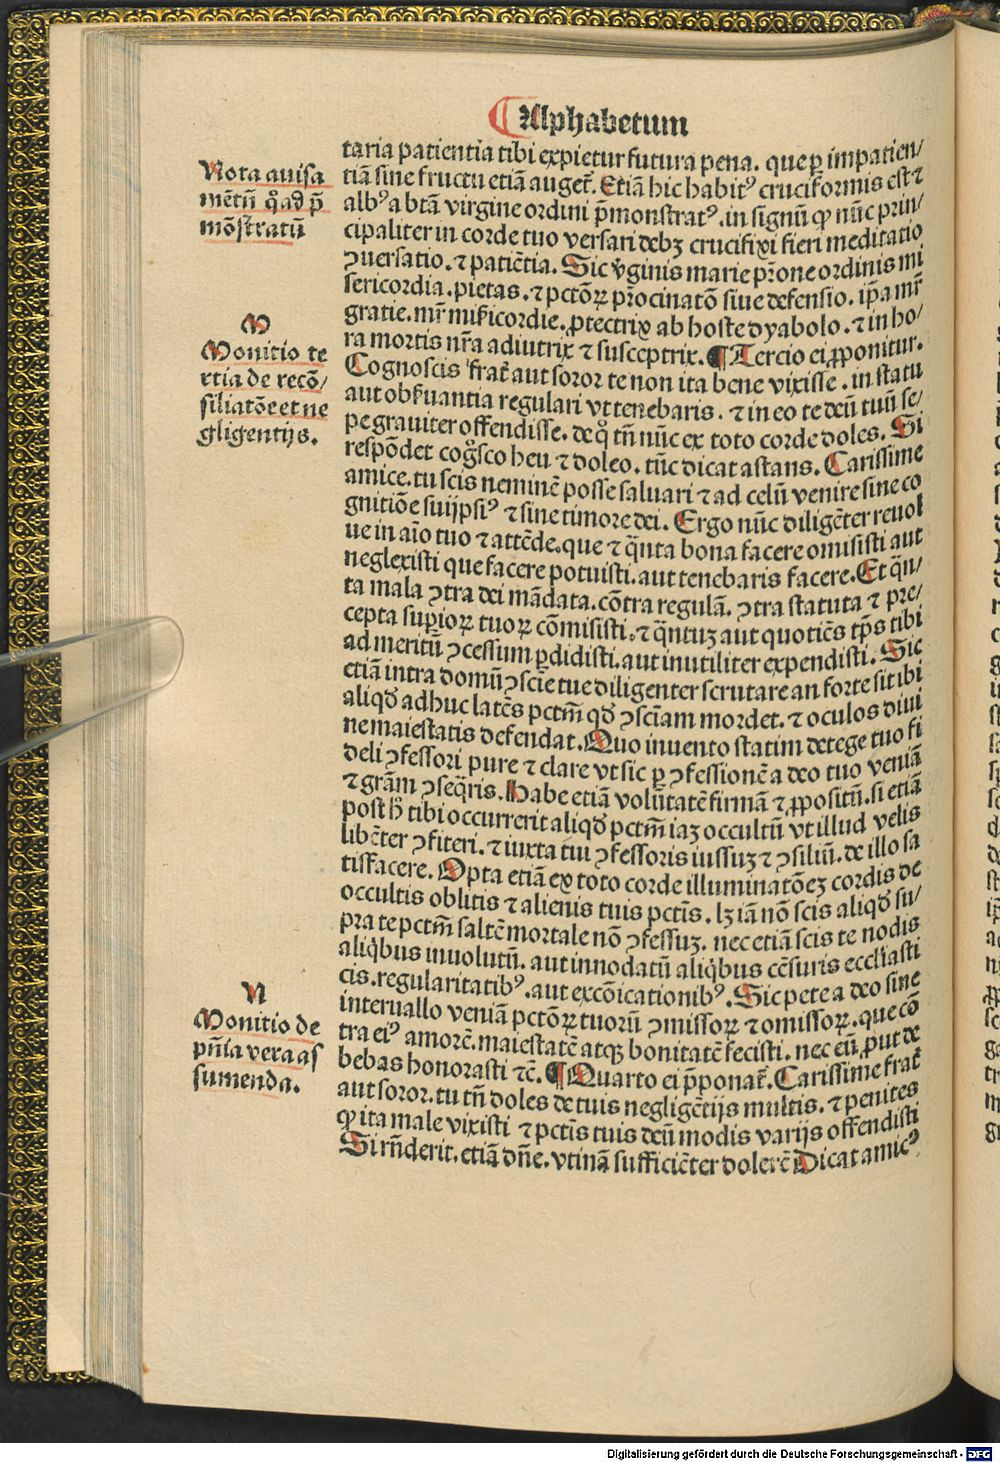 Alphabetum
taria patientia tibi expietur futura pena. que ꝑ impatien/
tiā sine fructu etiā auget᷑. Etiā hic habitꝰ cruciformis est ⁊
albꝰ a btā virgine ordini p̄monstratꝰ. in signū ꝙ nūc prin/
cipaliter in corde tuo versari debꝫ crucifixi fieri meditatio
ꝯuersatio. ⁊ patiētia. Sic v̄ginis marie pr̄one ordinis mi
sericordia. pietas. ⁊ pctōꝝ pr̄ocinatō siue defensio. ip̄a mr̄
gratie. mr̄ mīcordie. ꝓtectrix ab hoste dyabolo. ⁊ in ho/
ra mortis nr̄a adiutrix ⁊ susceptrix. ¶ Tercio ei ꝓponitur.
Cognoscis frat᷑ aut soror te non ita bene vixisse. in statu
aut obẜuantia regulari vt tenebaris. ⁊ in eo te deū tuū se/
pe grauiter offendisse. de qͦ tn̄ nūc ex toto corde doles. Si
respōdet cogͦsco heu ⁊ doleo. tūc dicat astans. Carissime
amice. tu scis neminē posse saluari ⁊ ad celū venire sine co
gnitiōe suijpsiꝰ ⁊ sine timore dei. Ergo nūc diligēter reuol
ue in aīo tuo ⁊ attēde. que ⁊ q̄nta bona facere omisisti aut
neglexisti que facere potuisti. aut tenebaris facere. Et q̄n/
ta mala ꝯtra dei mādata. cōtra regulā. ꝯtra statuta ⁊ pre/
cepta suꝑioꝝ tuoꝝ cōmisisti. ⁊ q̄ntuꝫ aut quotiēs tp̄s tibi
ad meritū ꝯcessum ꝑdidisti. aut inutiliter expendisti. Sic
etiā intra domū ꝯscīe tue diligenter scrutare an forte sit ibi
aliqd̄ adhuc latēs pctm̄ qd̄ ꝯsciam mordet. ⁊ oculos diui
ne maiestatis defendat. Quo inuento statim detege tuo fi
deli ꝯfessori pure ⁊ clare vt sic ꝑ ꝯfessionē a deo tuo veniā
⁊ grām ꝯseq̄ris. Habe etiā volūtatē firmā ⁊ ꝓpositū. si etiā
post h̄ tibi occurrerit aliqd̄ pctm̄ iaꝫ occultū vt illud velis
libēter ꝯfiteri. ⁊ iuxta tui ꝯfessoris iussuꝫ ⁊ ꝯsiliū. de illo sa
tisfacere. Opta etiā ex toto corde illuminatōeꝫ cordis de
occultis oblitis ⁊ alienis tuis pctīs. lꝫ iā nō scis aliqd̄ su/
pra te pctm̄ saltē mortale nō ꝯfessuꝫ. nec etiā scis te nodis
aliqͥbus inuolutū. aut innodatū aliqͥbus cēsuris eccliasti
cis. regularitatibꝰ. aut excōicationibꝰ. Sic pete a deo sine
interuallo veniā pctōꝝ tuorū ꝯmissoꝝ ⁊ omissoꝝ. que cō
tra eiꝰ amorē. maiestatē atqꝫ bonitatē fecisti. nec eū ꝓut de
bebas honorasti ⁊c̄. ¶ Quarto ei p̄ponat᷑. Carissime frat᷑
aut soror. tu tn̄ doles de tuis negligētijs multis. ⁊ penites
ꝙ ita male vixisti ⁊ pctis tuis deū modis varijs offendisti
Si rn̄derit. etiā dn̄e. vtinā sufficiēter dolerē Dicat amicꝰ
Nota auisa
mētū qͦad p̄
mōstratū
M
Monitio te
rtia de recō/
siliatōe et ne
gligentijs.
N
Monitio de
pn̄ia vera as
sumenda.
Digitalisierung gefördert durch die Deutsche Forschungsgemeinschaft - DFG